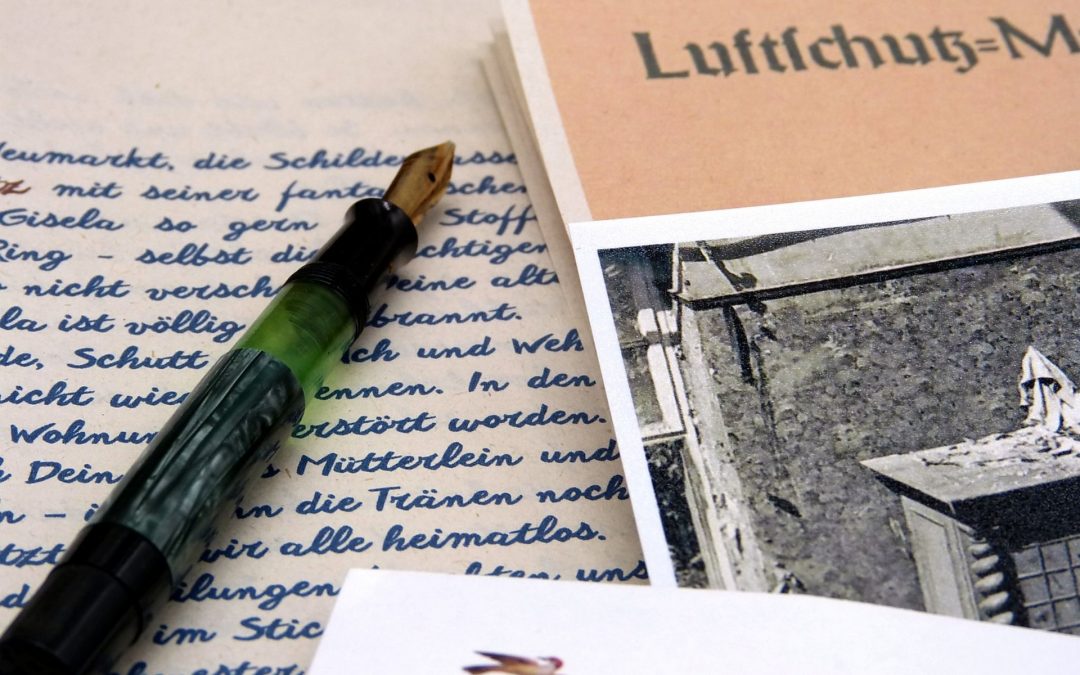 Luftſchutz=M
eumarkt, die Schilde asse
tz mit seiner fanta schen
Gisela so gern Stoff
Ring – selbst di chtigen
nicht versch eine alte
la ist völlig brannt.
de, Schutt ch und Weh
nicht wie ennen. In den
Wohnun erstört worden.
Dein s Mütterlein und
n – in die Tränen noch
tzt wir alle heimatlos.
ilungen uns
im Stic